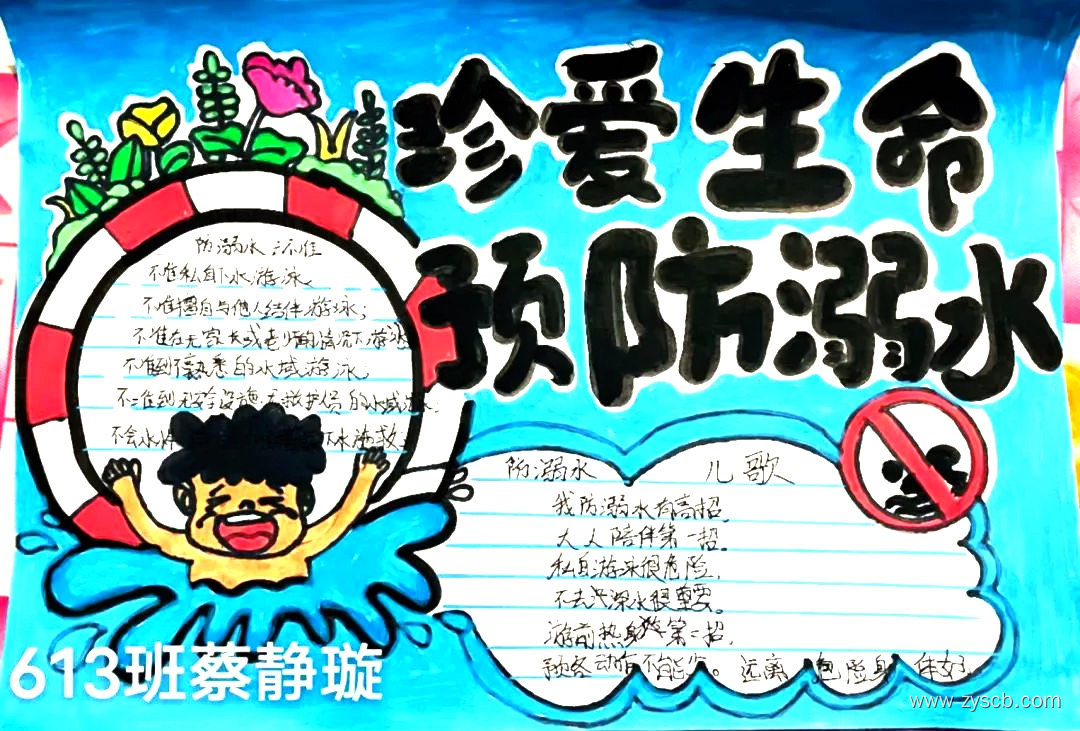 珍爱生命
预防溺水
防溺水六不准
不准私自下水游泳
不准擅自与他人结伴游泳;
不准在无家长或老师的情况下游泳
不准到不熟悉的水域游泳
不准到无安全设施、无救护人员的水域游泳
不会水性 下水施救;
防溺水 儿歌
我防溺水有高招,
大人陪伴第一招,
私自游泳很危险,
不去 深水很重要,
游前热身 第二招,
预备动作不能少。远离 危险身体好
613班蔡静璇
www.zyscb.com